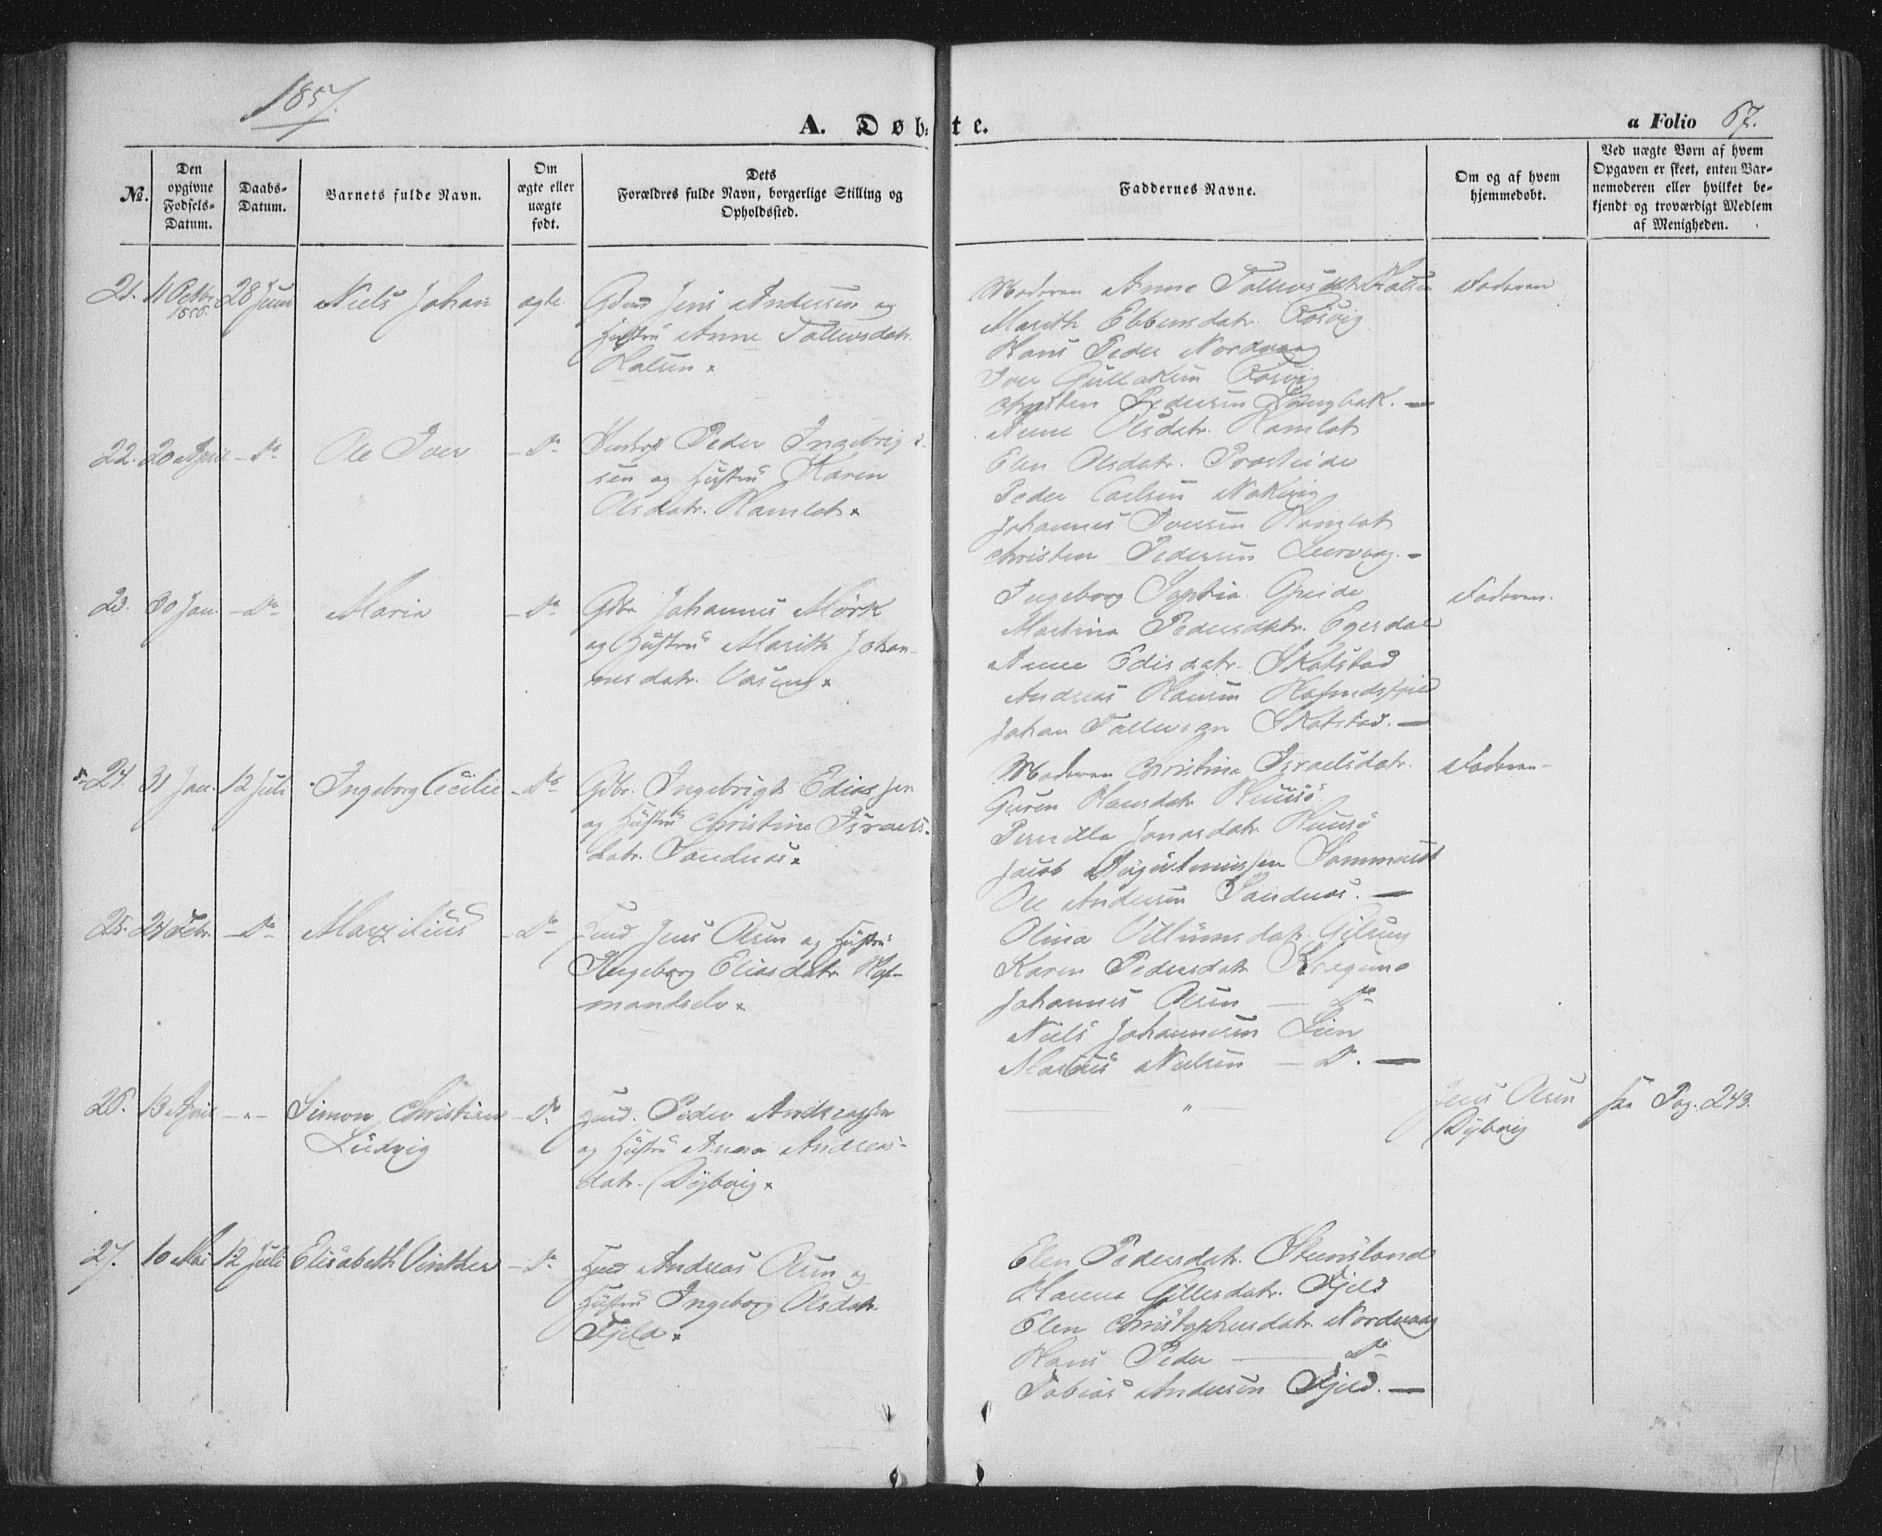 1857.
A. Døbte.
a Folio 67.
No.
Den opgivne Fødsels-Datum.
Daabs-Datum.
Barnets fulde Navn.
Om ægte eller uægte født.
Dets Forældres fulde Navn, borgerlige Stilling og Opholdssted.
Faddernes Navne.
Om og af hvem hjemmedøbt.
Ved uægte Børn af hvem Opgaven er skeet, enten Barnemoderen eller hvilket bekjendt og troværdigt Medlem af Menigheden.
21. 11 Octbr 1856. 28 Juni Niels Johan ægte Jens Andersen og
Hustru Anne Tollevsdatr.
Halsen
Moderen Anne Tollevsdatr Halsen
Marith Ebbensdatr. Rosvig
Hans Peder Nordvaag
Iver Rosvig
Christen Pedersen Langbak. —
Faderen
22. 20 April - Do Ole Iver - Do Peder Ingebrigt-
sen og Hustru Karen
Olsdatr. Hamlot
Anne Olsdatr. Hamlot
Elen Olsdatr.
Peder Carlsen
Johannes Iversen Hamlot
Christen Pedersen Leervaag. -
23. 30 Jan. - Do Maria - Do Gbr. Johannes Mörk
og Hustru Marith Johan-
nesdatr.
Ingeborg Sophia
Martina Pedersdatr. Egersdal
Anne Edisdatr. Skotstad
Andreas Hansen
Johan Tollevsen Skotstad. —
Faderen.
24. 31 Jan. 12 Juli Ingeborg Cecilie - Do Gbr. Ingebrigt Ediassen
og Hustru Christine Israels-
datr. Sandnes
Moderen Christine Israelsdatr.
Guren Hansdatr Huusö
Pernille Jonasdatr. Huusö
Jacob
Ole Andersen Sandnes. —
Faderen -
25. 24 Febr. - Do - Do Jens Olsen og Hustru
Ingeborg Eliasdatr. Hof-
mandselv
Olina Villumsdatr.
Karen Pedersdatr.
Johannes Olsen — Do
Niels Johannesen Lien
Marius Nielsen - D. —
26. 13 April - " - Simon Christian
Ludvig
- Do Hmd. Peder Andreassen
og Hustru Anna Andreas-
datr. Dÿbvig
"
Jens Olsen
Dÿbvig
see Pag. 243.
27. 10 Mai 12 Juli Elisabeth Vinther - Do Hmd Andreas Olsen og
Hustru Ingeborg Olsdatr.
Fjeld
Elen Pedersdatr. Steensland
Hanna Gillesdatr. Fjeld
Elen Christophersdatr. Nordvaag
Hans Peder — Do
Tobias Andersen Fjeld. —